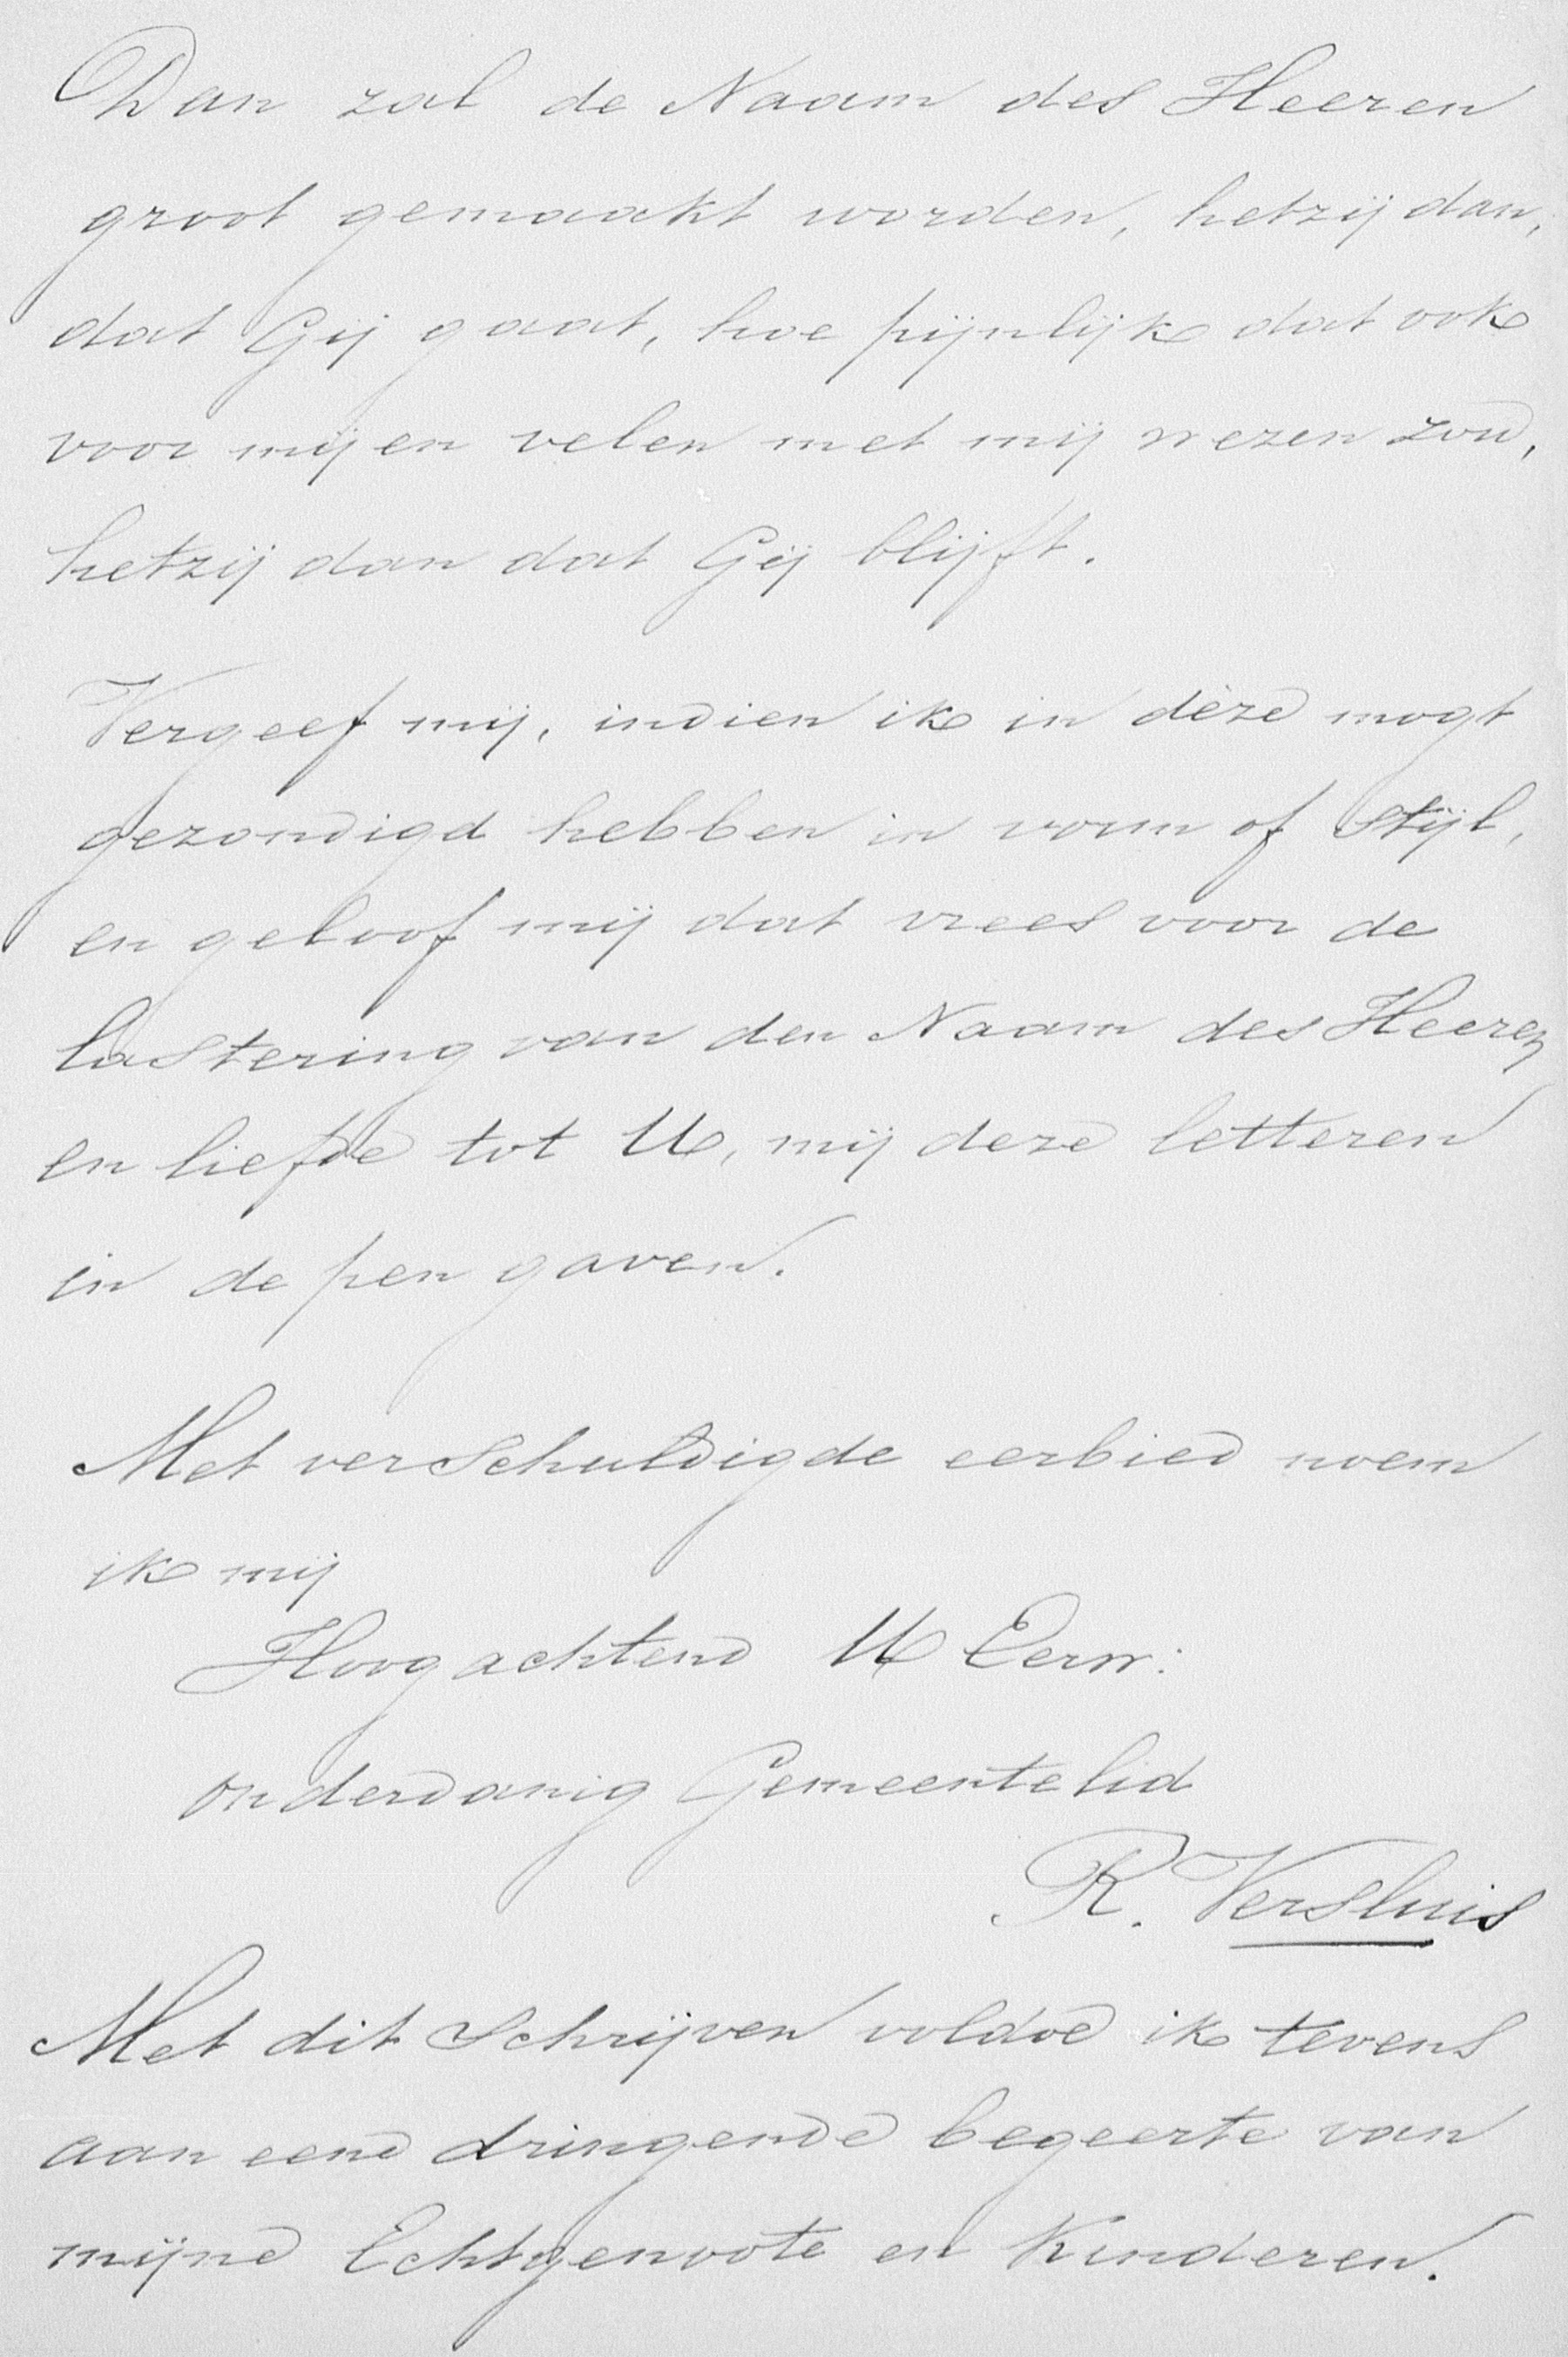 Dan zal de Naam des Heeren
groot gemaakt worden, hetzij dan,
dat Gij gaat, hoe pijnlijk dat ook
voor mij en velen met mij wezen zou,
hetzij dan dat Gij blijft.
Vergeef mij, indien ik in déze mogt
gezondigd hebben in vorm of stijl,
en geloof mij dat vrees voor de
lastering van den Naam des Heeren
en liefde tot U, mij deze letteren
in de pen gaven.
Met verschuldigde eerbied noem
ik mij
Hoogachtend U Eerw:
onderdanig Gemeentelid
R. Versluis
Met dit schrijven voldoe ik tevens
aan eene dringende begeerte van
mijne Echtgenoote en Kinderen.